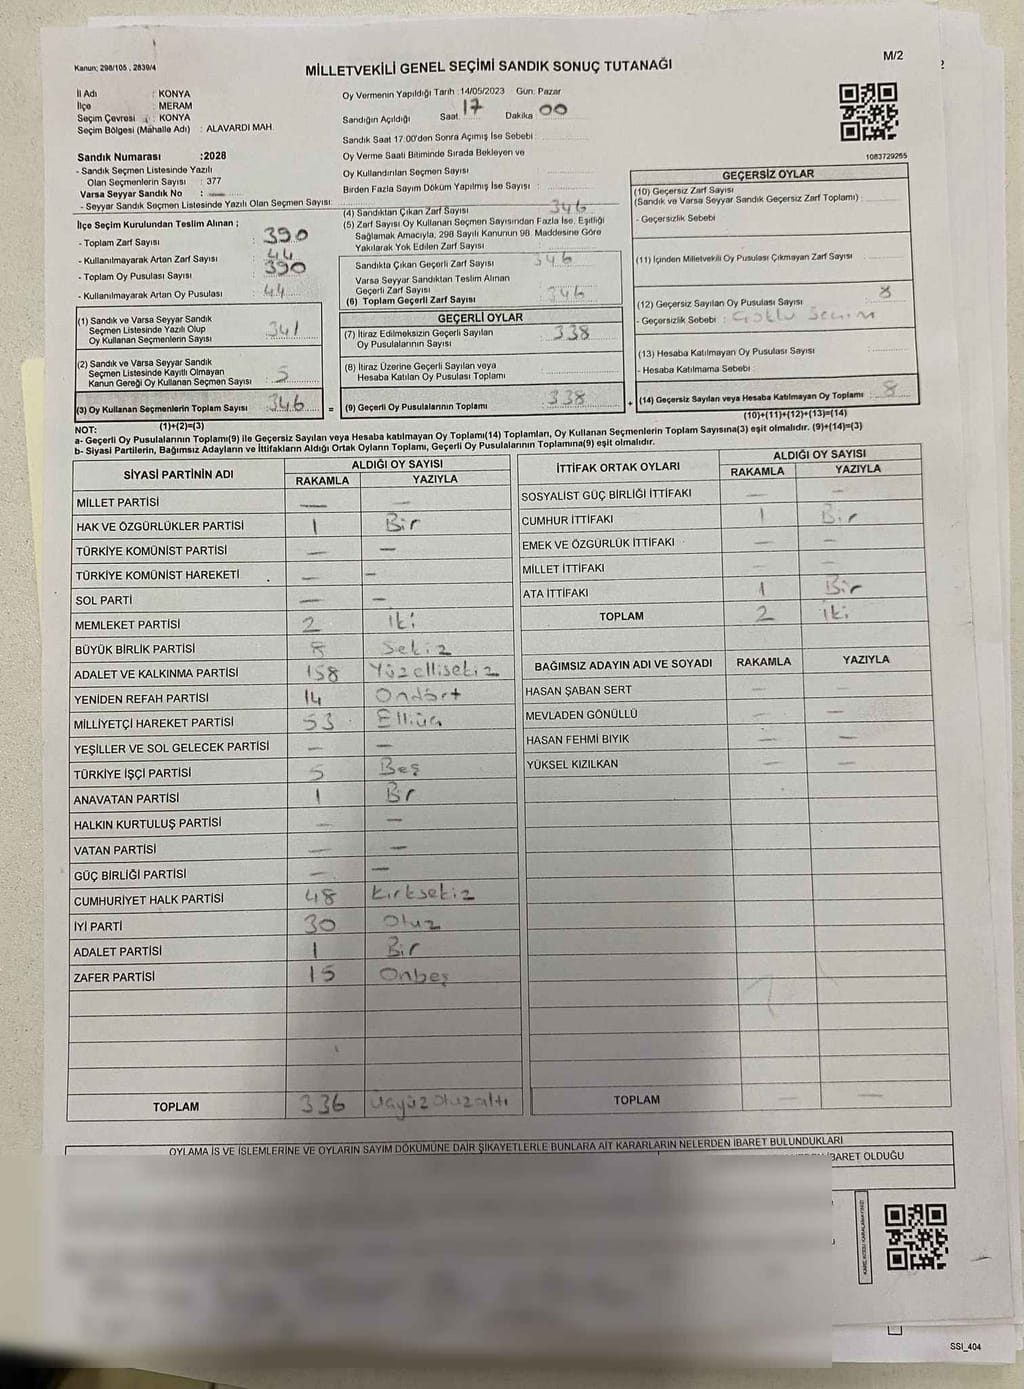 Kanun; 298/105 , 2839/4
M/2
MİLLETVEKİLİ GENEL SEÇİMİ SANDIK SONUÇ TUTANAĞI
İl Adı : KONYA
İlçe : MERAM
Seçim Çevresi : KONYA
Seçim Bölgesi (Mahalle Adı) : ALAVARDI MAH.
Sandık Numarası :2028
- Sandık Seçmen Listesinde Yazılı
Olan Seçmenlerin Sayısı : 377
Varsa Seyyar Sandık No :
- Seyyar Sandık Seçmen Listesinde Yazılı Olan Seçmen Sayısı:
Oy Vermenin Yapıldığı Tarih :14/05/2023 Gün: Pazar
Sandığın Açıldığı Saat 17 Dakika 00
Sandık Saat 17.00'den Sonra Açımış İse Sebebi
Oy Verme Saati Bitiminde Sırada Bekleyen ve
Oy Kullandırılan Seçmen Sayısı
Birden Fazla Sayım Döküm Yapılmış İse Sayısı :
1083729265
İlçe Seçim Kurulundan Teslim Alınan ;
- Toplam Zarf Sayısı : 390
- Kullanılmayarak Artan Zarf Sayısı : 44
- Toplam Oy Pusulası Sayısı : 390
- Kullanılmayarak Artan Oy Pusulası : 44
(1) Sandık ve Varsa Seyyar Sandık
Seçmen Listesinde Yazılı Olup
Oy Kullanan Seçmenlerin Sayısı : 341
(2) Sandık ve Varsa Seyyar Sandık
Seçmen Listesinde Kayıtlı Olmayan
Kanun Gereği Oy Kullanan Seçmen Sayısı : 5
(3) Oy Kullanan Seçmenlerin Toplam Sayısı : 346
(1)+(2)=(3)
(4) Sandıktan Çıkan Zarf Sayısı 346
(5) Zarf Sayısı Oy Kullanan Seçmen Sayısından Fazla İse, Eşitliği
Sağlamak Amacıyla, 298 Sayılı Kanunun 98. Maddesine Göre
Yakılarak Yok Edilen Zarf Sayısı :
Sandıkta Çıkan Geçerli Zarf Sayısı : 346
Varsa Seyyar Sandıktan Teslim Alınan
Geçerli Zarf Sayısı
(6) Toplam Geçerli Zarf Sayısı : 346
GEÇERLİ OYLAR
(7) İtiraz Edilmeksizin Geçerli Sayılan
Oy Pusulalarının Sayısı : 338
(8) İtiraz Üzerine Geçerli Sayılan veya
Hesaba Katılan Oy Pusulası Toplamı :
= (9) Geçerli Oy Pusulalarının Toplamı : 338 +
GEÇERSİZ OYLAR
(10) Geçersiz Zarf Sayısı
(Sandık ve Varsa Seyyar Sandık Geçersiz Zarf Toplamı) :
- Geçersizlik Sebebi :
(11) İçinden Milletvekili Oy Pusulası Çıkmayan Zarf Sayısı
(12) Geçersiz Sayılan Oy Pusulası Sayısı : 8
- Geçersizlik Sebebi :
(13) Hesaba Katılmayan Oy Pusulası Sayısı :
- Hesaba Katılmama Sebebi :
(14) Geçersiz Sayılan veya Hesaba Katılmayan Oy Toplamı : 8
(10)+(11)+(12)+(13)=(14)
NOT:
a- Geçerli Oy Pusulalarının Toplamı(9) ile Geçersiz Sayılan veya Hesaba katılmayan Oy Toplamı(14) Toplamları, Oy Kullanan Seçmenlerin Toplam Sayısına(3) eşit olmalıdır. (9)+(14)=(3)
b- Siyasi Partilerin, Bağımsız Adayların ve İttifakların Aldığı Ortak Oyların Toplamı, Geçerli Oy Pusulalarının Toplamına(9) eşit olmalıdır.
SİYASİ PARTİNİN ADI ALDIĞI OY SAYISI
RAKAMLA YAZIYLA
MİLLET PARTİSİ — —
HAK VE ÖZGÜRLÜKLER PARTİSİ 1 Bir
TÜRKİYE KOMÜNİST PARTİSİ — —
TÜRKİYE KOMÜNİST HAREKETİ — —
SOL PARTİ — —
MEMLEKET PARTİSİ 2 iki
BÜYÜK BİRLİK PARTİSİ 8 Sekiz
ADALET VE KALKINMA PARTİSİ 158 Yüzellisekiz
YENİDEN REFAH PARTİSİ 14 Ondört
MİLLİYETÇİ HAREKET PARTİSİ 53 Elliüç
YEŞİLLER VE SOL GELECEK PARTİSİ — —
TÜRKİYE İŞÇİ PARTİSİ 5 Beş
ANAVATAN PARTİSİ 1 Bir
HALKIN KURTULUŞ PARTİSİ — —
VATAN PARTİSİ — —
GÜÇ BİRLİĞİ PARTİSİ — —
CUMHURİYET HALK PARTİSİ 48 Kırksekiz
İYİ PARTİ 30 Otuz
ADALET PARTİSİ 1 Bir
ZAFER PARTİSİ 15 Onbeş
TOPLAM 336 üçyüzotuzaltı
İTTİFAK ORTAK OYLARI ALDIĞI OY SAYISI
RAKAMLA YAZIYLA
SOSYALİST GÜÇ BİRLİĞİ İTTİFAKI — —
CUMHUR İTTİFAKI 1 Bir
EMEK VE ÖZGÜRLÜK İTTİFAKI — —
MİLLET İTTİFAKI — —
ATA İTTİFAKI 1 Bir
TOPLAM 2 iki
BAĞIMSIZ ADAYIN ADI VE SOYADI RAKAMLA YAZIYLA
HASAN ŞABAN SERT — —
MEVLADEN GÖNÜLLÜ — —
HASAN FEHMİ BIYIK — —
YÜKSEL KIZILKAN — —
TOPLAM — —
OYLAMA İŞ VE İŞLEMLERİNE VE OYLARIN SAYIM DÖKÜMÜNE DAİR ŞİKAYETLERLE BUNLARA AİT KARARLARIN NELERDEN İBARET BULUNDUKLARI
İBARET OLDUĞU
SSİ_404